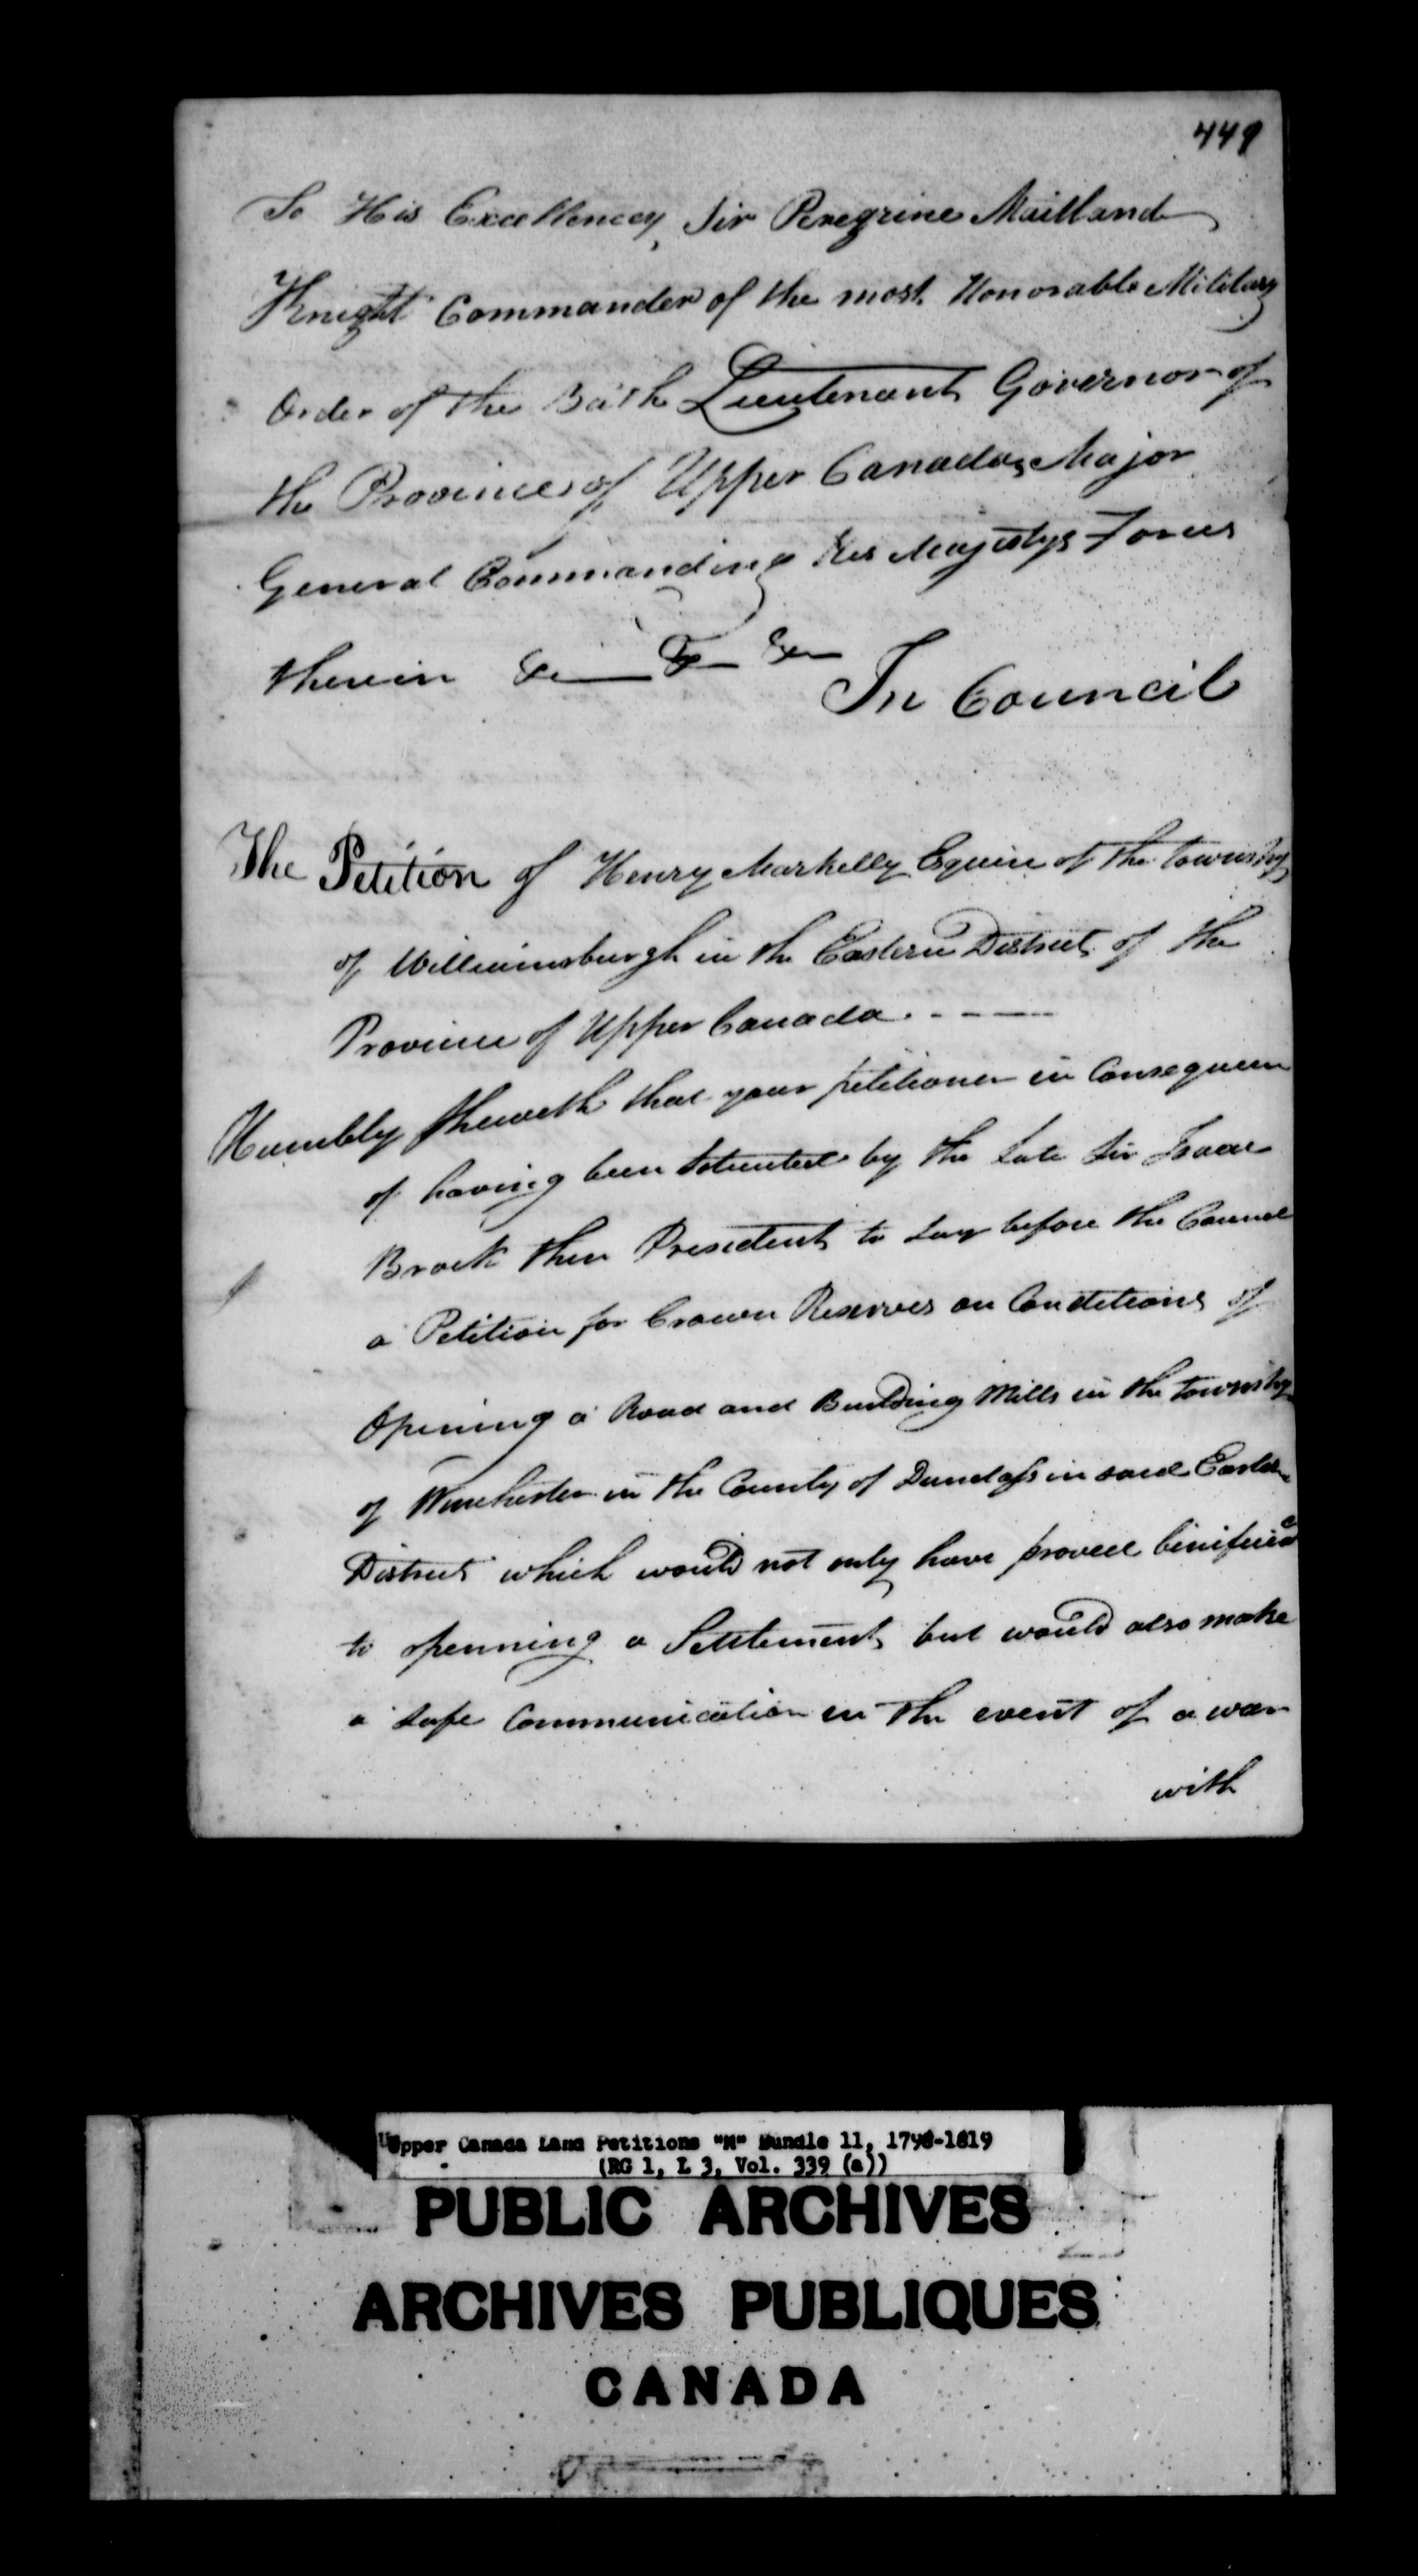 449
To His Excellency, Sir Peregrine Maitland
Knight Commander of the most Honorable Military
Order of the Bath Lieutenant Governor of
the Province of Upper Canada, Major
General Commanding His Majestys Forces
therein &c &c &c
In Council
The Petition of Henry Markelly Esquire of the township
of Williamsburgh in the Eastern District of the
Province of Upper Canada
Humbly sheweth that your petitioner in Consequence
of having been by the late Sir Isaac
Brock then President to lay before the Council
a Petition for Crown Reserves on Conditions of
Opening a Road and Building Mills in the township
of Winchester in the County of Dundass in said Eastern
District which would not only have proved
to openning a Settlement but would also make
a safe Communication in the event of a war
with
Upper Canada Land Petitions "M" Bundle 11, 1798-1819
(RG 1, L 3, Vol. 339 (a))
PUBLIC ARCHIVES
ARCHIVES PUBLIQUES
CANADA